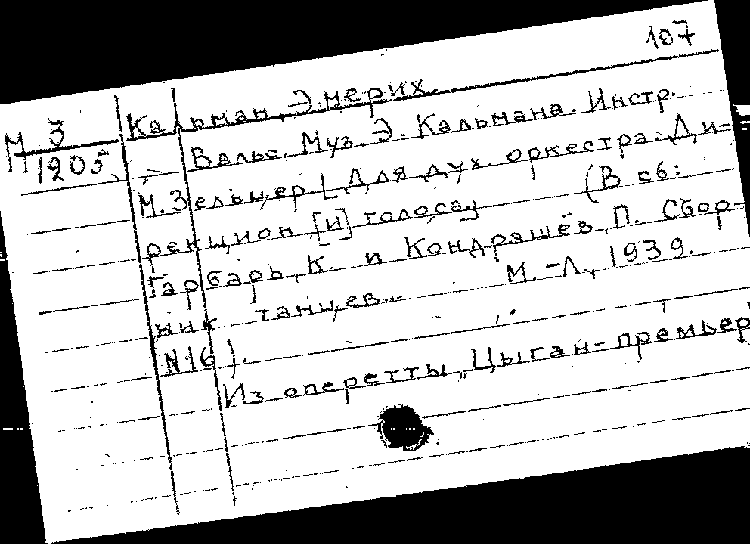 107
М 3
1205
Кальман, Эмерих.
Вальс. Муз. Э. Кальмана. Инстр.
М. Зельцер. [Для дух. оркестра. Ди-
рекцион [и] голоса]
(В сб:
Гарбарь, К. и Кондряшёв, П. Сбор-
ник танцев... М.-Л., 1939.
N16).
Из оперетты „Цыган-премьер